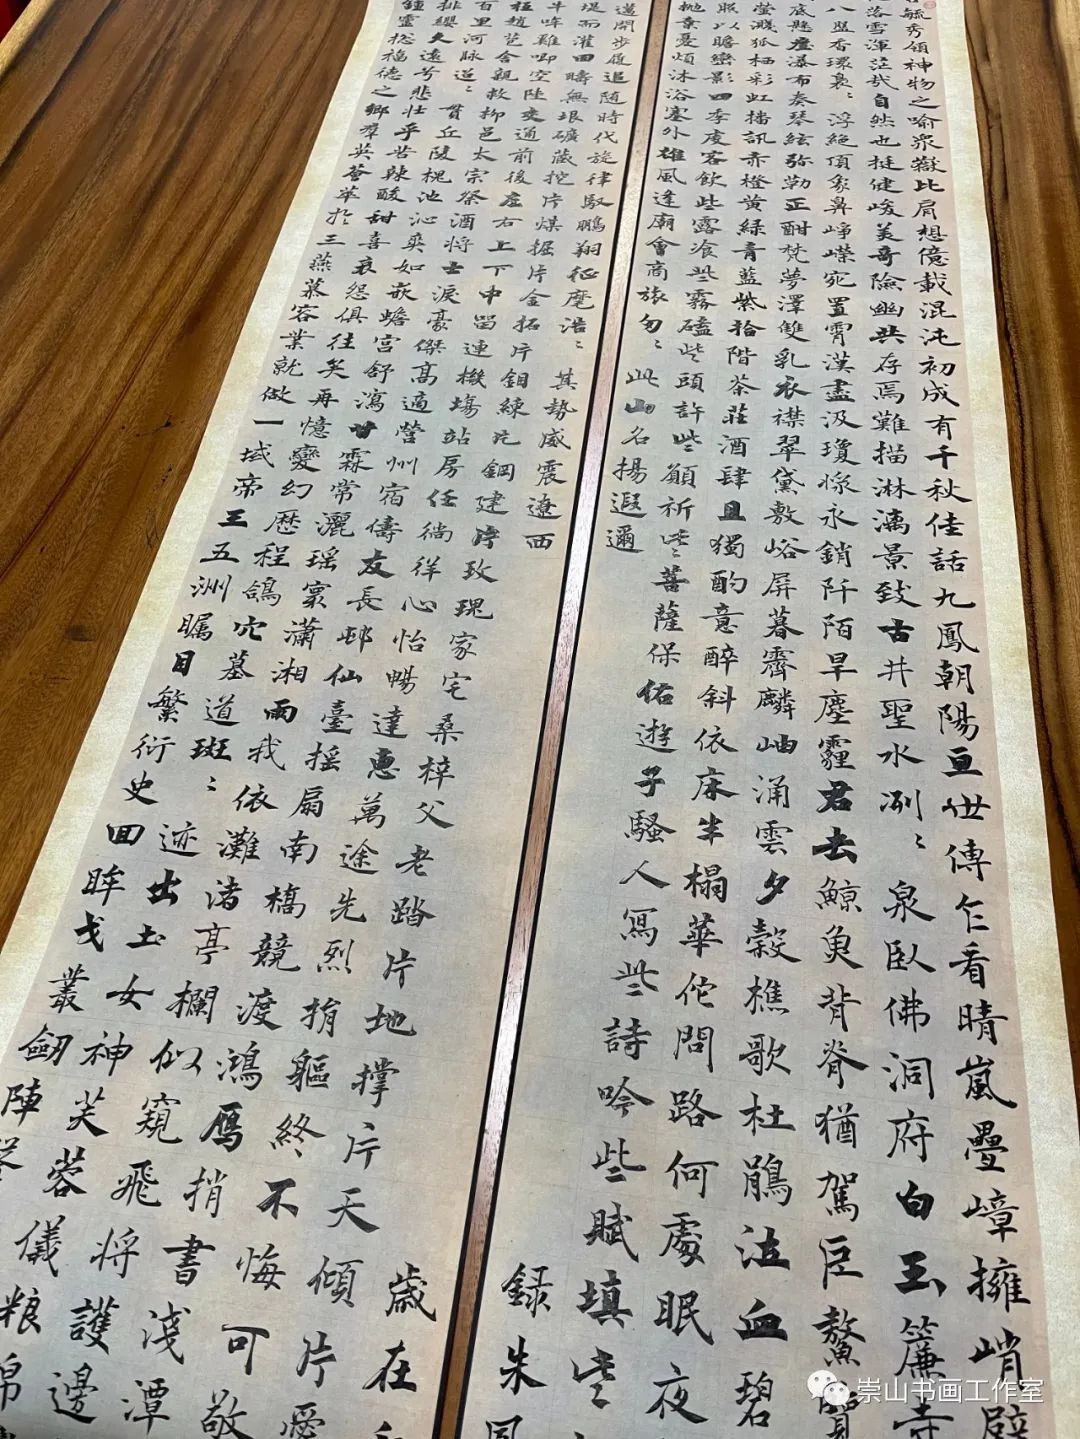 毓秀領神物之喻衆嶽比肩想億載混沌初成有千秋佳話九鳳朝陽亘世傳乍看晴嵐疊嶂擁峭壁
落雪渾茫哉自然也挺健峻美奇險幽共存焉難描淋漓景致古井聖水冽〻泉臥佛洞府白玉簾寺
八盤香環裊〻浮絕頂象鼻崢嶸宛置霄漢盡汲瓊漿永銷阡陌旱塵霾君去鯨魚背脊猶駕巨鰲覽
底懸壺瀑布奏琴絃弥勒正酣梵夢澤雙乳衣襟翠黛敷峪屏暮霽麟岫涌雲夕縠樵歌杜鵑泣血碧
螢濺狐栖彩虹播訊赤橙黃綠青藍紫拾階茶莊酒肆且獨酌意醉斜依床半榻華佗問路何處眠夜
照以瞻巒影四季虔客飲些露飡些霧磕些頭許些願祈些菩薩保佑遊子騷人寫些詩吟些賦填些
拋棄憂煩沐浴塞外雄風逢廟會商旅匆〻此山名揚遐邇
録朱同
邁開步履追隨時代旋律馭鵬翔征麾浩〻其勢威震遼西
堤而灌田疇無垠礦藏挖片煤掘片金拓片鉬練片鋼建片玫瑰家宅桑梓父老踏片地撐片天傾片愛
牛哞雞唧空陸交通前後左右上下中留連機塲站房任徜徉心怡暢達惠萬途先烈捐軀終不悔可敬
程趙苞舍親救柳邑太宗祭酒將士淚豪傑高適營州宿儔友長邨仙臺摇扇南橋競渡鴻雁捎書淺潭
百里河脉迢〻貫丘陵槐池沁爽如嵌蟾宮舒瀉甘霖常灑瑶寰瀟湘雨我依灘渚亭欄似窺飛將護邊
排纓久遠兮悲壯乎苦辣酸甜喜哀怨俱往矣再憶變幻歷程鴿穴墓道斑〻迹出土女神芙蓉儀粮
鍾靈福德之鄉羣英薈萃於三燕慕容業就做一域帝王五洲矚目繁衍史回眸戈叢劍陣
歲在
崇山书画工作室